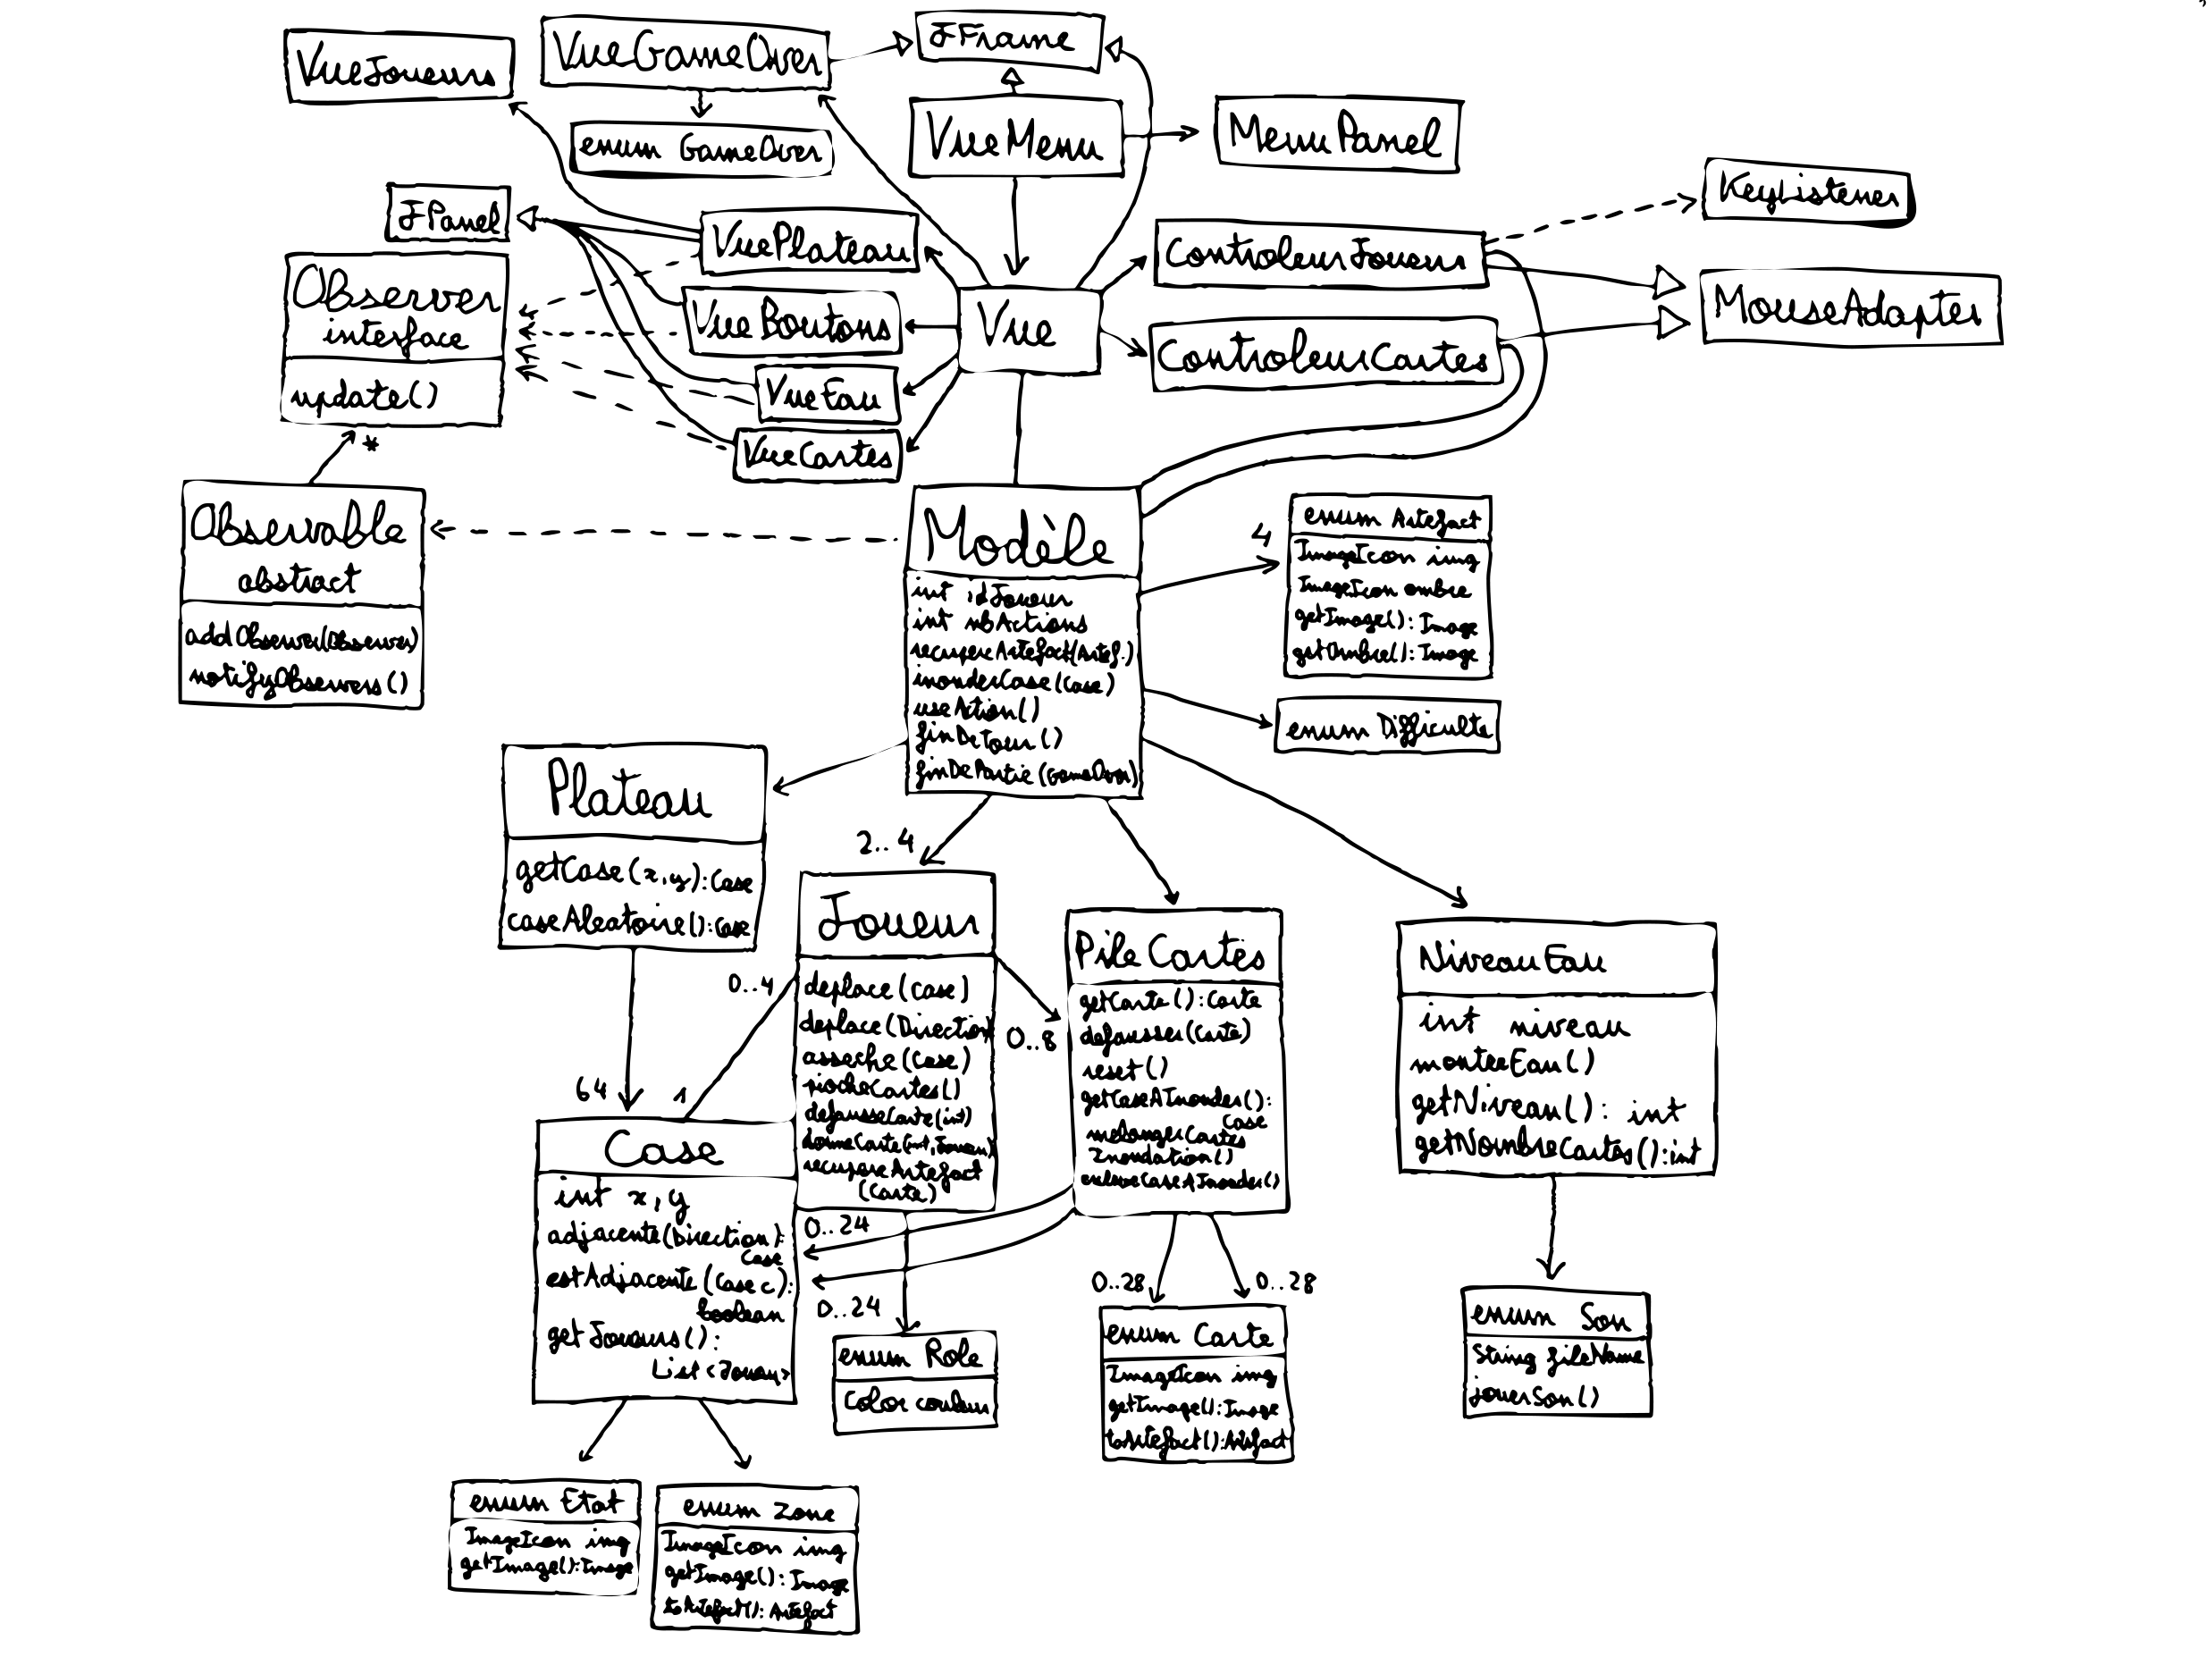 VueJoueurs
VueGameOver
JFrame
enum GameOver
VueMenu
MenuPanel
KeyListener
JPanel
VuePlateau
ControleurJoueur
Observer
interface
update()
*
VueBoutons
Vue
MouseAdapter
ControleurCartes
VueEau
VueCartes
Observable
abstract
addObserver(Observer)
notifyObservers()
Modèle
int idJoueur
int nbActions
recupereArtefact(Artef.)
inonderCase(Case)
useAction()
finDeTour()
finDePartie(GameOver)
4
enum Artefact
ImageIcon img
ImageIcon ombre
getImage(): Image
getOmbre(): Image
enum Difficulte
Plateau
getCase(x,y): Case
caseAleatoire(): Case
2..4
Joueur
deplace(Case)
deplace(Direction)
asseche(Case)
piocheCartes()
defausseCarte(int)
donneCarte(int, Joueur)
recupereArtefact
(Carte)
0..4
1
64
0..8
PileCartes
getCarte(): Carte
defausser(Carte)
reset()
getCaseAInonder():
Case
melangerCartes
Inondation()
enleveCaseAInonder()
NiveauEau
int niveau
monteeEau()
getNiveau(): int
getNombreCartes(): int
Case
int x,y
adjacente(Direction):
Case
estAdjacente(Case c):
boolean
getJoueurs():
List<Joueur>
0..24
0..24
0..28
0..28
enum Role
Color couleur
enum Carte
ImageIcon img
getImage(): Image
toArtefact(): Artefact
enum Son
String fileName
jouerSon()
enum Etat
ImageIcon img
getImage(): Image
enum Zone
ImageIcon img
getImage(): Image
toArtefact(): Artefact